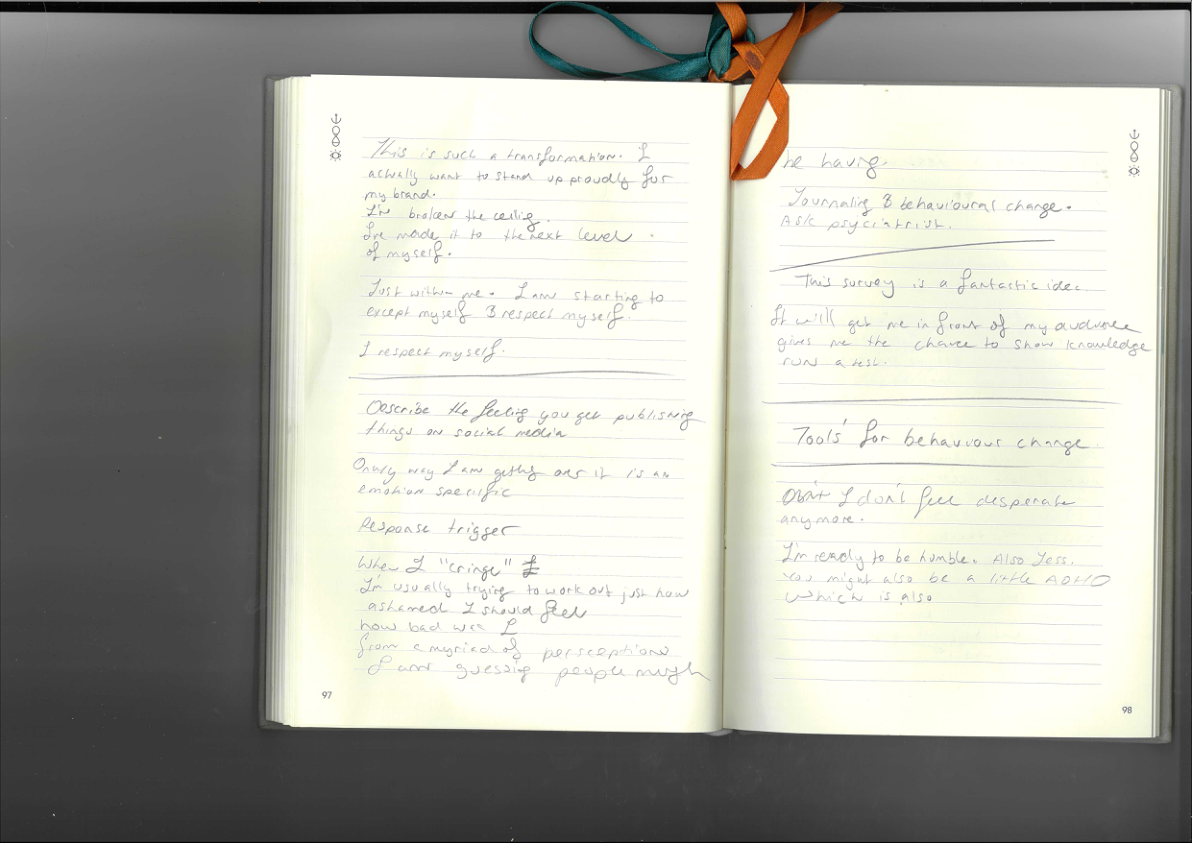 This is such a transformation. I
actually want to stand up proudly for
my brand.
I'm broken the ceiling.
I've made it to the next level
of myself.
Just within me. I am starting to
except myself & respect myself.
I respect myself.
Describe the feeling you get publishing
things on social media
Only way I am getting over it is an
emotion specific
Response trigger
When I "cringe" I
I'm usually trying to work out just how
ashamed I should feel
how bad was I
from a myriad of perseptions
I am guessing people migh
97
be having.
Journaling & behavioural change.
Ask psyciatrist.
This survey is a fantastic idea
It will get me in front of my audience
gives me the chance to show knowledge
run a test.
Tools' for behaviour change
I don't feel desperate
anymore.
I'm ready to be humble. Also Jess.
You might also be a little ADHD
which is also
98